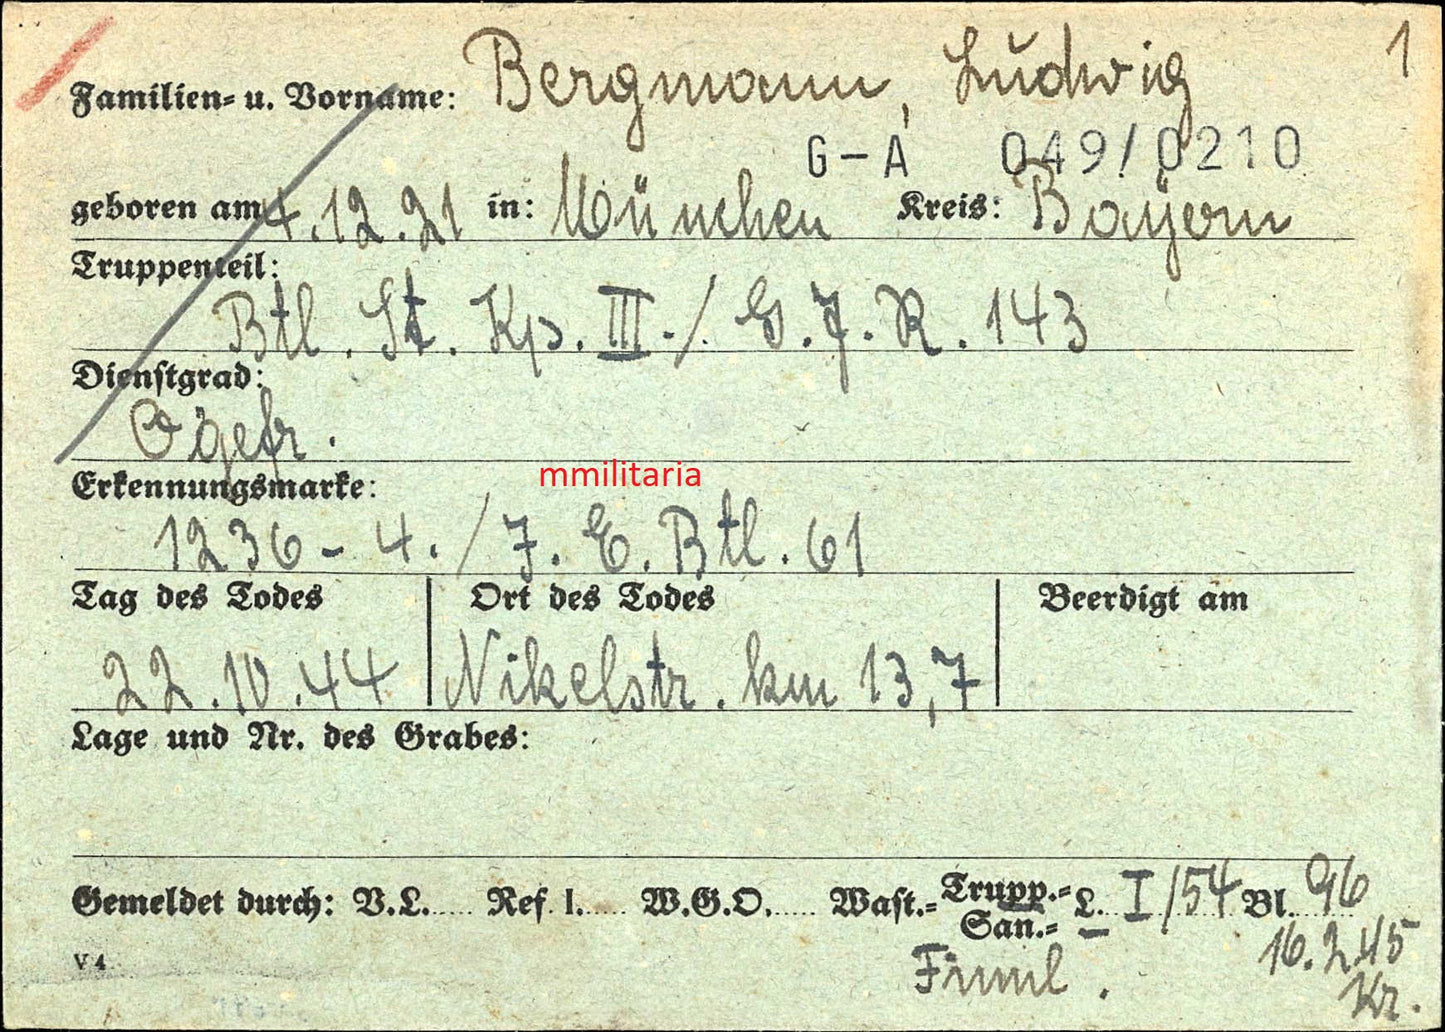 1
Familien- u. Vorname: Bergmann, Ludwig
G-A 049/0210
geboren am 4.12.21 in: München Kreis: Bayern
Truppenteil:
Btl. St. Kp. III./G.J.R. 143
Dienstgrad:
Ogefr.
mmilitaria
Erkennungsmarke:
1236 - 4./J.E.Btl. 61
Tag des Todes Ort des Todes Beerdigt am
22.10.44 Nikelstr. km 13,7
Lage und Nr. des Grabes:
Gemeldet durch: V.L..... Ref. 1..... W.G.O..... Wast.= Trupp.= San.= L. I/54 Bl. 96
16.2.45
V 4
Finnl.
Kr.